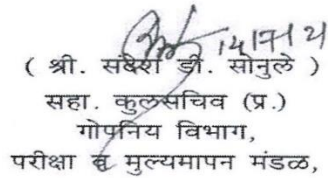 14/7/21
( श्री. संदेश डी. सोनुले )
सहा. कुलसचिव (प्र.)
गोपनिय विभाग,
परीक्षा व मुल्यमापन मंडळ,